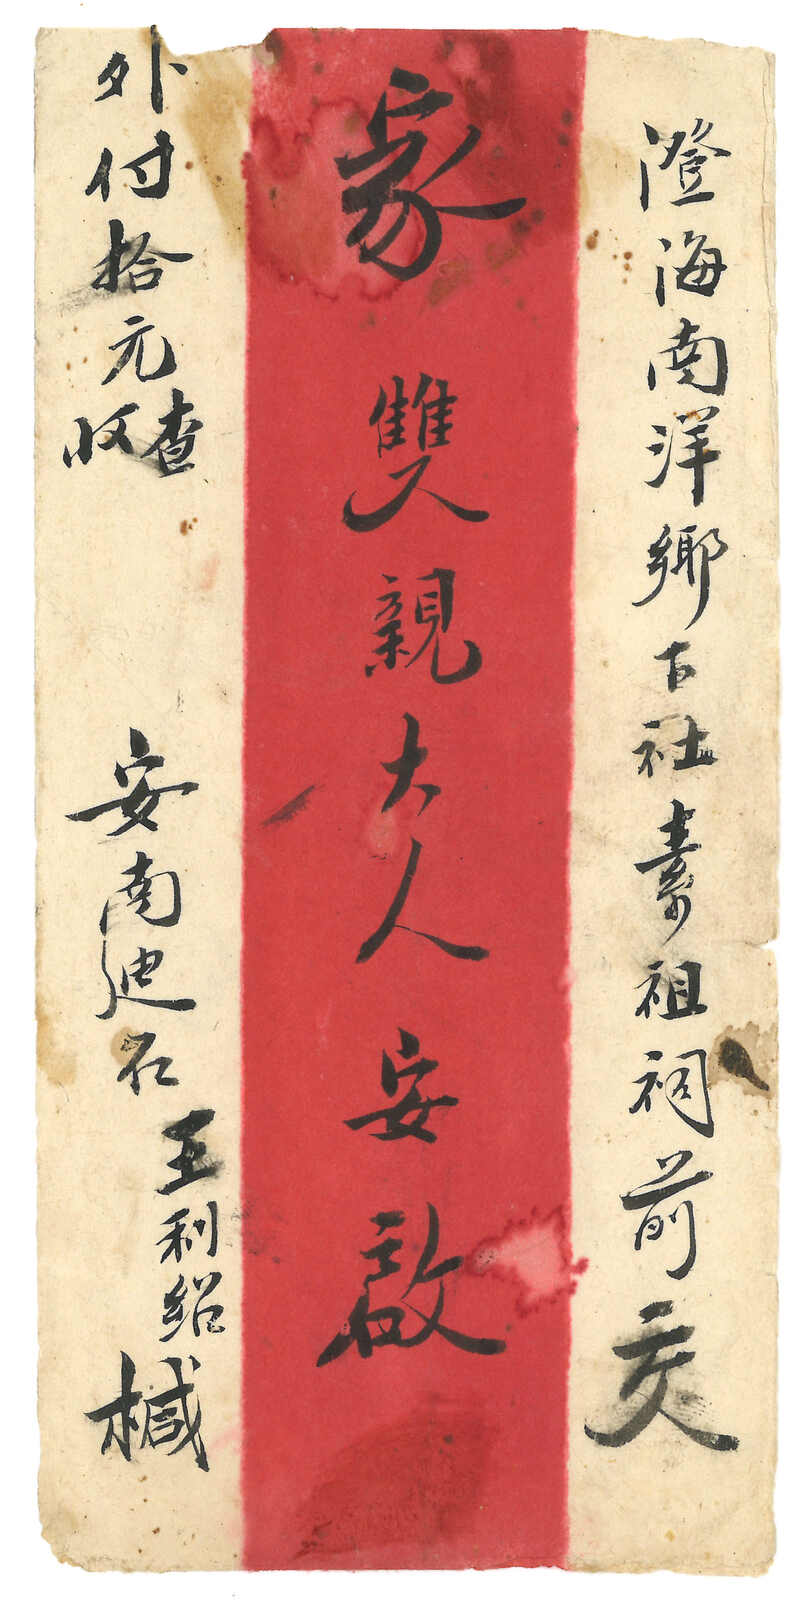 澄海南洋鄉下社素祖祠前交
家雙親大人安啟
外付拾元查收
安南迪石王利紹椷